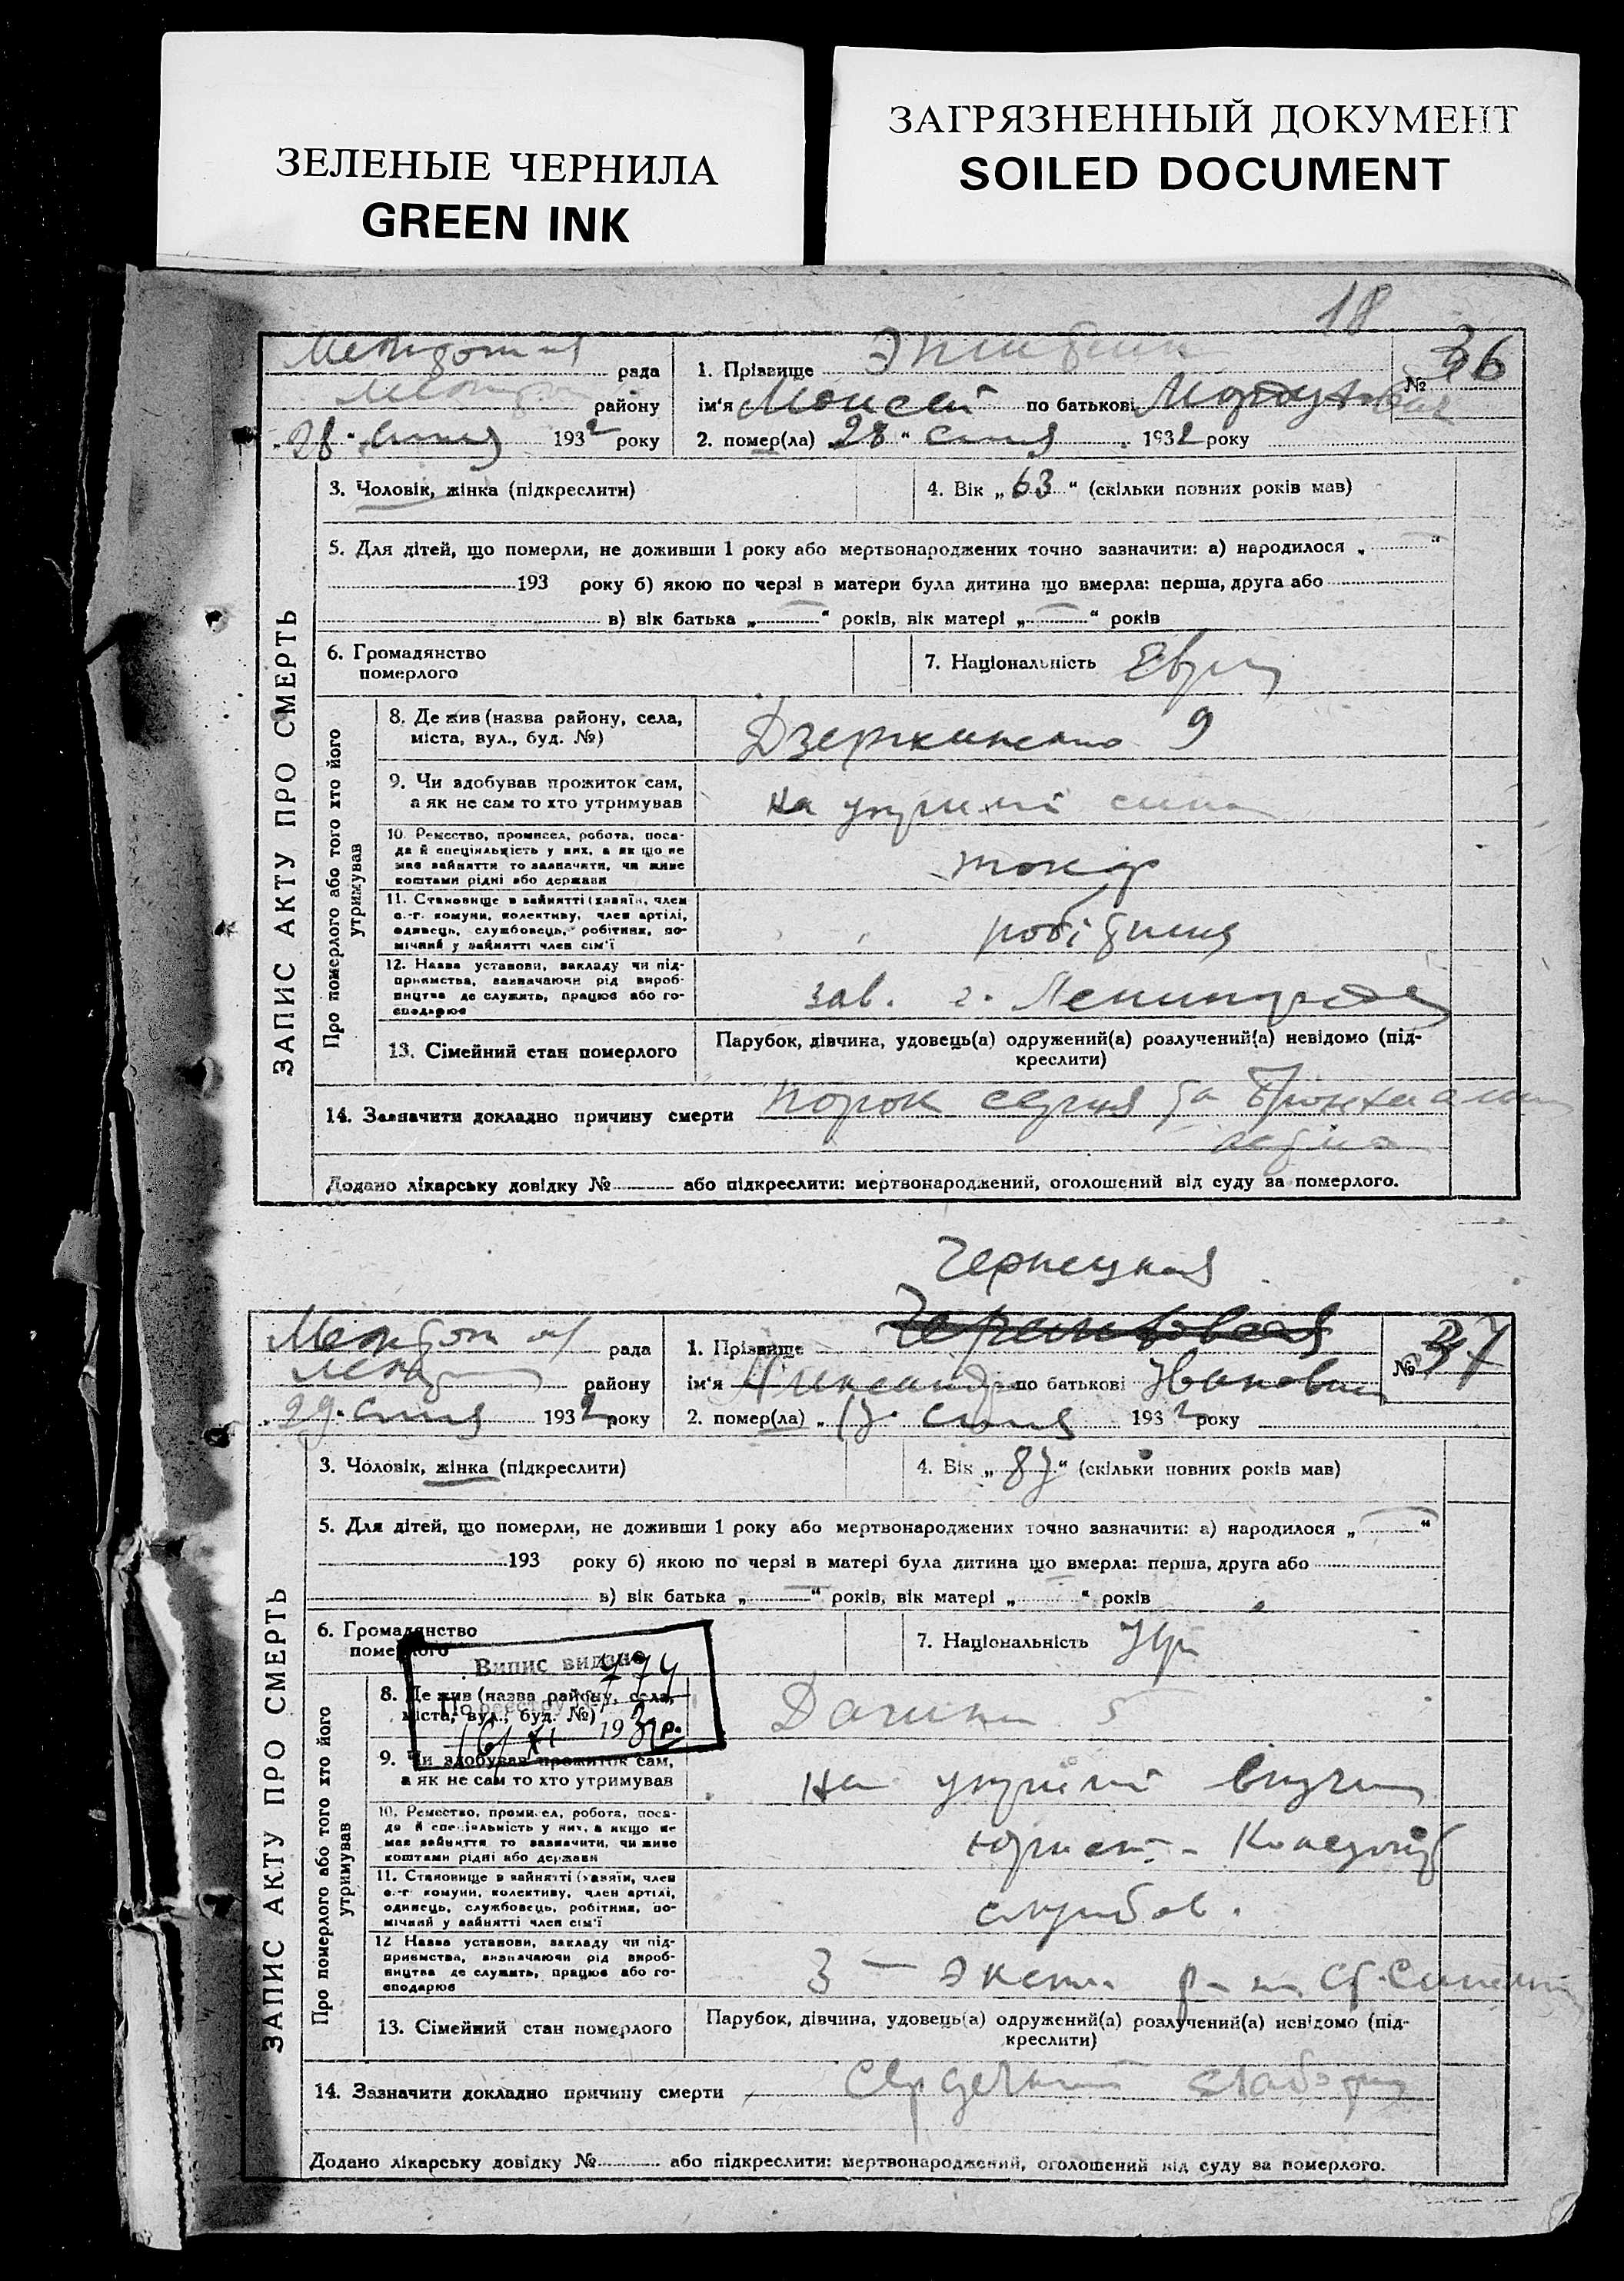 ЗЕЛЕНЫЕ ЧЕРНИЛА
GREEN INK
ЗАГРЯЗНЕННЫЙ ДОКУМЕНТ
SOILED DOCUMENT
18
рада
району
"28" січня 1932 року
1. Прізвище
№ 36
ім'я Моисей по батькові
2. помер(ла) "28" січня 1932 року
ЗАПИС АКТУ ПРО СМЕРТЬ
3. Чоловік, жінка (підкреслити)
4. Вік „63“ (скільки повних років мав)
5. Для дітей, що померли, не доживши 1 року або мертвонароджених точно зазначити: а) народилося „ “
193 року б) якою по черзі в матери була дитина що вмерла: перша, друга або
в) вік батька „ “ років, вік матері „ “ років
6. Громадянство
померлого
7. Національність Еврей
Про померлого або того хто його
утримував
8. Де жив (назва району, села,
міста, вул., буд. №)
Дзержинского 9
9. Чи здобував прожиток сам,
а як не сам то хто утримував
на утримані сина
10. Ремество, промисел, робота, поса-
да й спеціяльність у них, а як що не
мав зайняття то зазначити, чи живе
коштами рідні або держави
токар
11. Становище в зайнятті (хазяїн, член
с.-г. комуни, колективу, член артілі,
одинець, службовець, робітник, по-
мічний у зайнятті член сім'ї
робітник
12. Назва установи, закладу чи під-
приємства, зазначаючи рід вироб-
ництва де служить, працює або го-
сподарює
зав. г. Ленинград
13. Сімейний стан померлого
Парубок, дівчина, удовець(а) одружений(а) розлучений(а) невідомо (під-
креслити)
14. Зазначити докладно причину смерти порок серця та
Додано лікарську довідку № або підкреслити: мертвонароджений, оголошений від суду за померлого.
Чернецкая
рада
району
"29" січня 1932 року
1. Прізвище
№ 37
ім'я Александр по батькові Иванович
2. помер(ла) " січня 1932 року
ЗАПИС АКТУ ПРО СМЕРТЬ
3. Чоловік, жінка (підкреслити)
4. Вік „ “ (скільки повних років мав)
5. Для дітей, що померли, не доживши 1 року або мертвонароджених точно зазначити: а) народилося „ “
193 року б) якою по черзі в матері була дитина що вмерла: перша, друга або
в) вік батька „ “ років, вік матері „ “ років
6. Громадянство
померлого
7. Національність Укр
Випис видано
По реєстру № 774
16/XI 193 р.
Про померлого або того хто його
утримував
8. Де жив (назва району, села,
міста, вул., буд. №)
5
9. Чи здобував прожиток сам,
а як не сам то хто утримував
на утримані
10. Ремество, промисел, робота, поса-
да й спеціяльність у них, а якщо не
мав зайняття то зазначити, чи живе
коштами рідні або держави
юрист -
11. Становище в зайнятті (хазяїн, член
с.-г комуни, колективу, член артілі,
одинець, службовець, робітник, по-
мічний у зайнятті член сім'ї
службов.
12 Назва установи, закладу чи під-
приємства, визначаючи рід вироб-
ництва де служить, працює або го-
сподарює
3 — Экспл. р-н ст.
13. Сімейний стан померлого
Парубок, дівчина, удовець(а) одружений(а) розлучений(а) невідомо (під-
креслити)
14. Зазначити докладно причину смерти
Додано лікарську довідку № або підкреслити: мертвонароджений, оголошений від суду за померлого.